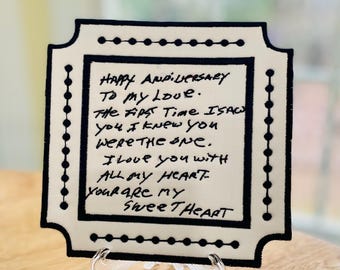 HAPPY ANNIVERSARY
TO MY LOVE.
THE FIRST TIME I SAW
YOU I KNEW YOU
WERE THE ONE.
I LOVE YOU WITH
ALL MY HEART.
YOU ARE MY
SWEET HEART